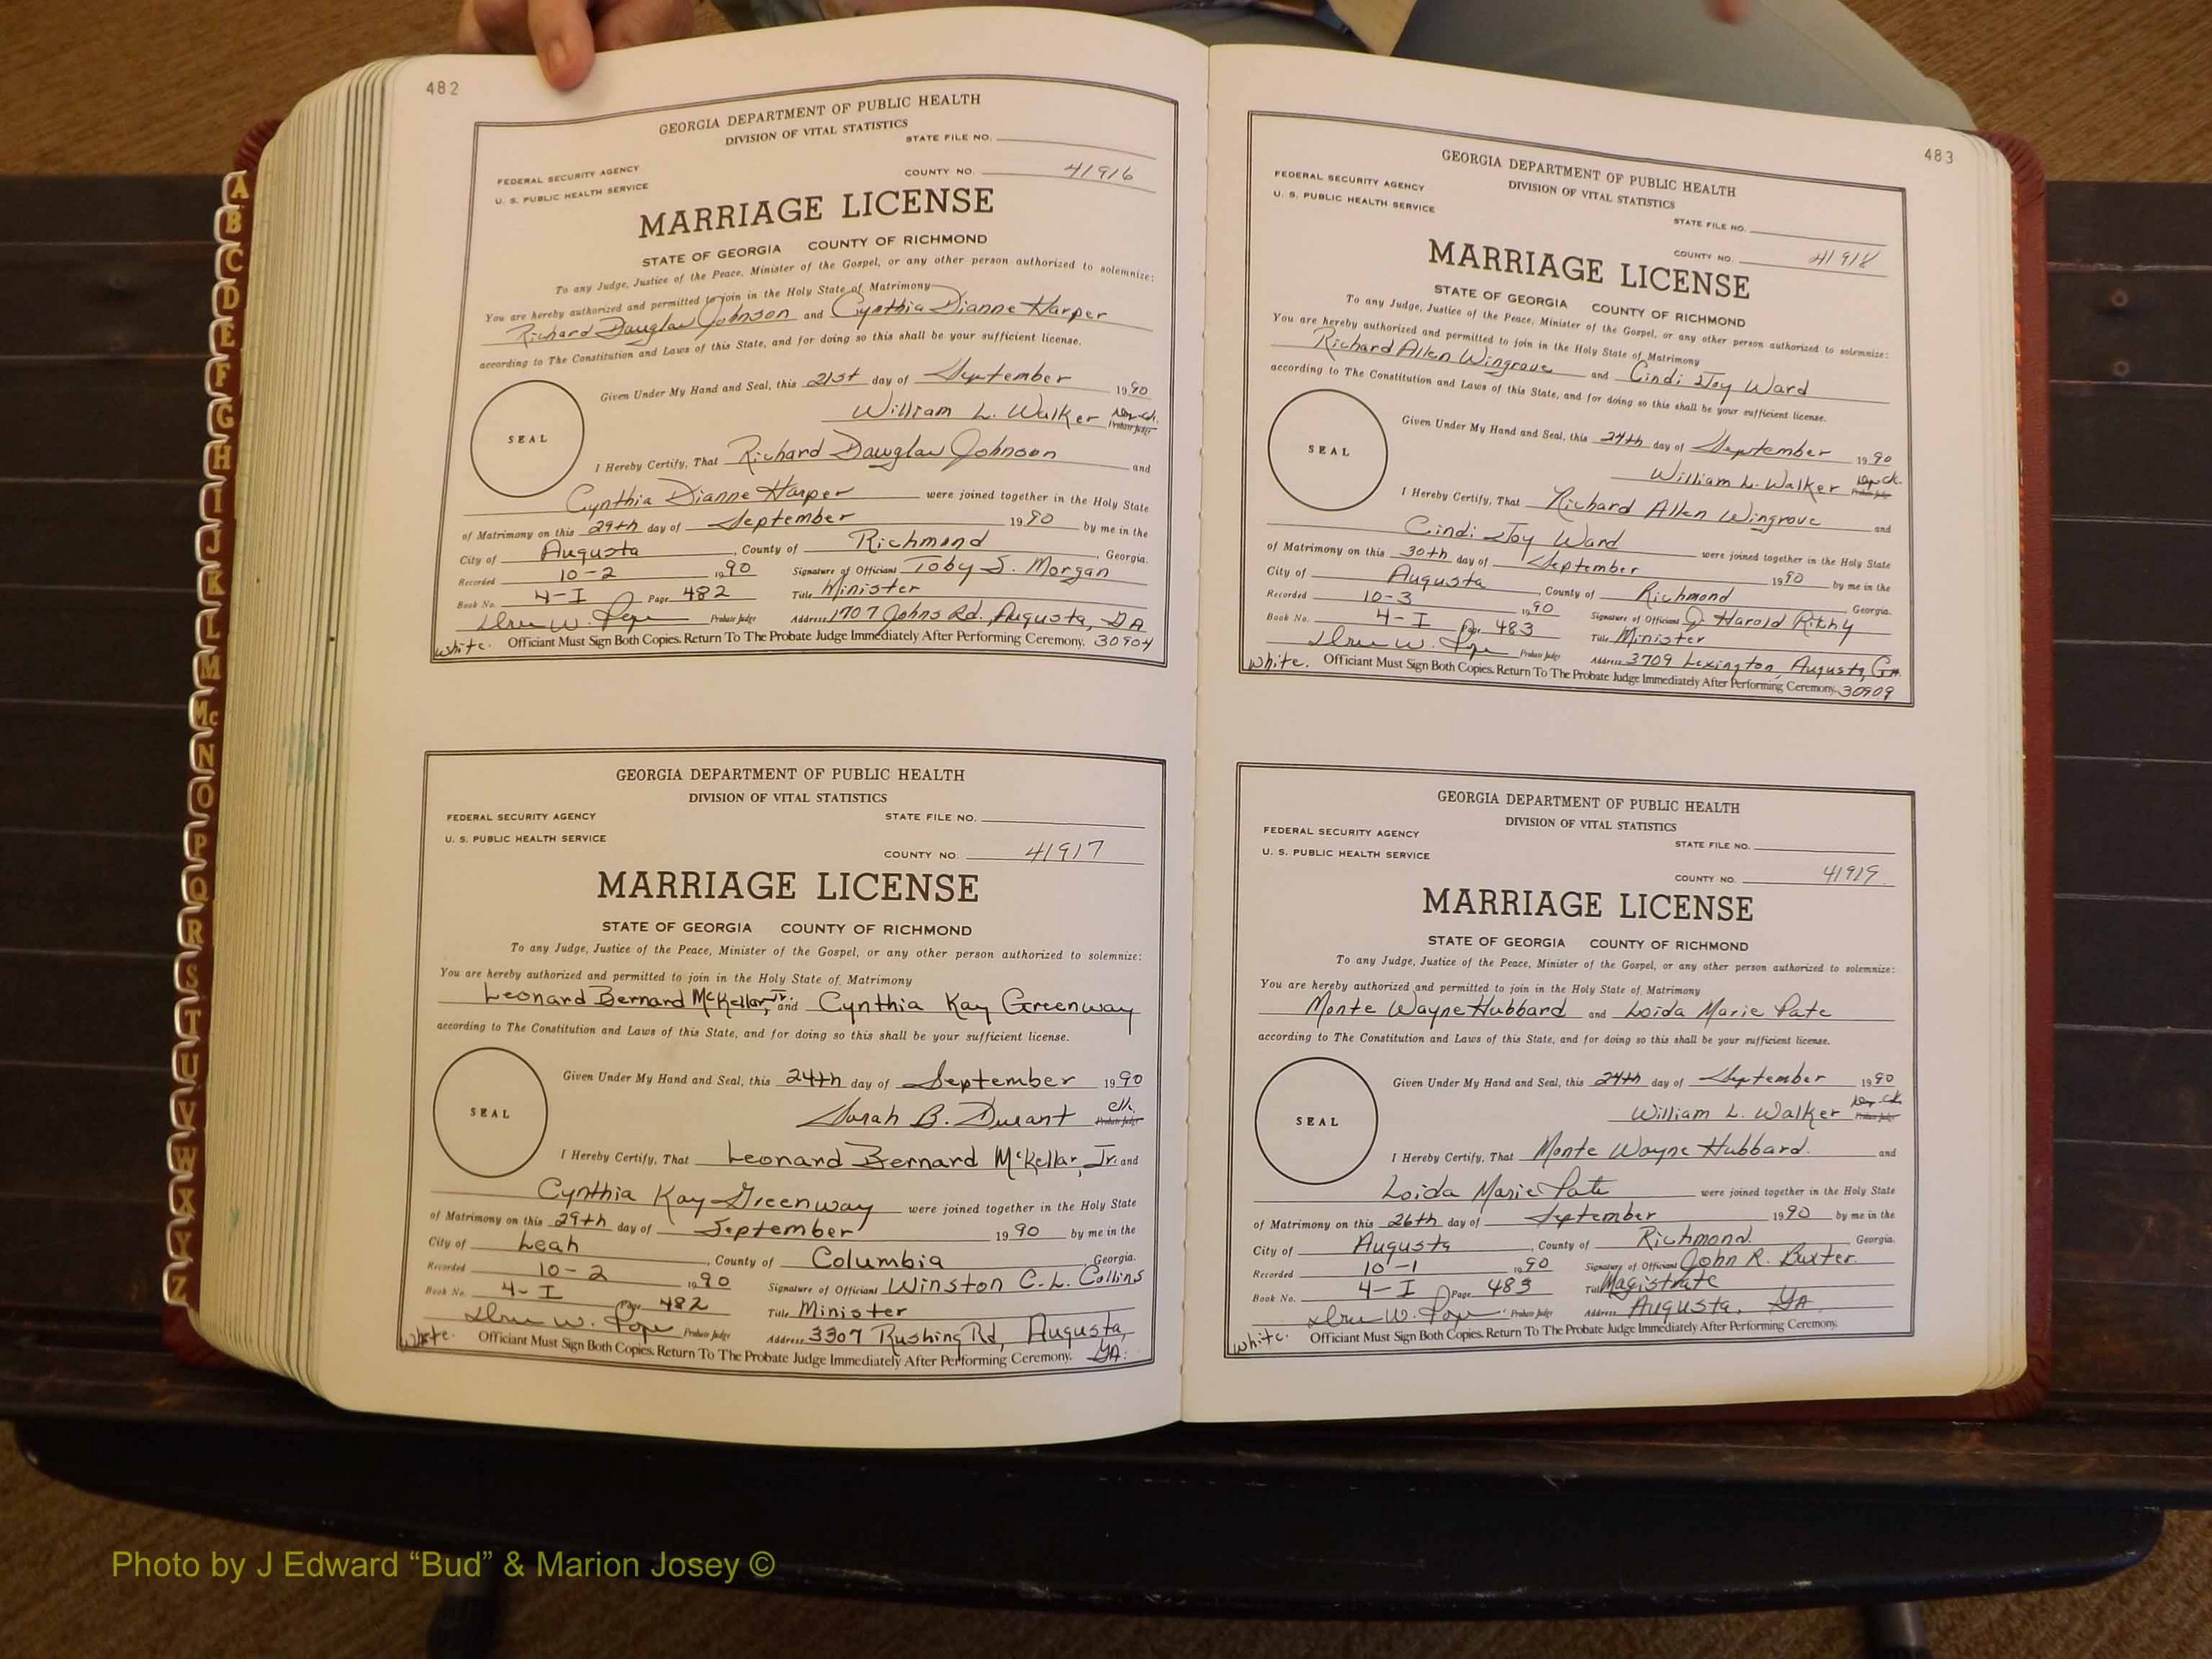 482
GEORGIA DEPARTMENT OF PUBLIC HEALTH
DIVISION OF VITAL STATISTICS
STATE FILE NO.
FEDERAL SECURITY AGENCY
U. S. PUBLIC HEALTH SERVICE
COUNTY NO. 41916
MARRIAGE LICENSE
STATE OF GEORGIA COUNTY OF RICHMOND
To any Judge, Justice of the Peace, Minister of the Gospel, or any other person authorized to solemnize:
You are hereby authorized and permitted to join in the Holy State of Matrimony
Richard Douglas Johnson and Cynthia Dianne Harper
according to The Constitution and Laws of this State, and for doing so this shall be your sufficient license.
Given Under My Hand and Seal, this 21st day of September 1990
William L. Walker Dep. Ck.
Probate Judge
SEAL
I Hereby Certify, That Richard Douglas Johnson and
Cynthia Dianne Harper were joined together in the Holy State
of Matrimony on this 29th day of September 1990 by me in the
City of Augusta, County of Richmond, Georgia.
Recorded 10-2 1990 Signature of Officiant Toby S. Morgan
Book No. 4-I Page 482 Title Minister
Probate Judge Address 1707 Johns Rd. Augusta, GA
White. Officiant Must Sign Both Copies. Return To The Probate Judge Immediately After Performing Ceremony. 30904
GEORGIA DEPARTMENT OF PUBLIC HEALTH
DIVISION OF VITAL STATISTICS
FEDERAL SECURITY AGENCY STATE FILE NO.
U. S. PUBLIC HEALTH SERVICE
COUNTY NO. 41917
MARRIAGE LICENSE
STATE OF GEORGIA COUNTY OF RICHMOND
To any Judge, Justice of the Peace, Minister of the Gospel, or any other person authorized to solemnize:
You are hereby authorized and permitted to join in the Holy State of Matrimony
Leonard Bernard McKellar, Jr. and Cynthia Kay Greenway
according to The Constitution and Laws of this State, and for doing so this shall be your sufficient license.
Given Under My Hand and Seal, this 24th day of September 1990
Sarah B. Durant Clk.
Probate Judge
SEAL
I Hereby Certify, That Leonard Bernard McKellar, Jr. and
Cynthia Kay Greenway were joined together in the Holy State
of Matrimony on this 29th day of September 1990 by me in the
City of Leah, County of Columbia Georgia.
Recorded 10-2 1990 Signature of Officiant Winston C.L. Collins
Book No. 4-I Page 482 Title Minister
Probate Judge Address 3307 Rushing Rd, Augusta,
White. Officiant Must Sign Both Copies. Return To The Probate Judge Immediately After Performing Ceremony. GA.
483
GEORGIA DEPARTMENT OF PUBLIC HEALTH
DIVISION OF VITAL STATISTICS
FEDERAL SECURITY AGENCY
U. S. PUBLIC HEALTH SERVICE
STATE FILE NO.
COUNTY NO. 41918
MARRIAGE LICENSE
STATE OF GEORGIA COUNTY OF RICHMOND
To any Judge, Justice of the Peace, Minister of the Gospel, or any other person authorized to solemnize:
You are hereby authorized and permitted to join in the Holy State of Matrimony
Richard Allen Wingrove and Cindi Joy Ward
according to The Constitution and Laws of this State, and for doing so this shall be your sufficient license.
Given Under My Hand and Seal, this 24th day of September 1990
William L. Walker Dep. Ck.
Probate Judge
SEAL
I Hereby Certify, That Richard Allen Wingrove and
Cindi Joy Ward were joined together in the Holy State
of Matrimony on this 30th day of September 1990 by me in the
City of Augusta, County of Richmond, Georgia.
Recorded 10-3 1990 Signature of Officiant J. Harold
Book No. 4-I Page 483 Title Minister
Probate Judge Address 3709 Lexington, Augusta, GA.
White. Officiant Must Sign Both Copies. Return To The Probate Judge Immediately After Performing Ceremony. 30909
GEORGIA DEPARTMENT OF PUBLIC HEALTH
DIVISION OF VITAL STATISTICS
FEDERAL SECURITY AGENCY
STATE FILE NO.
U. S. PUBLIC HEALTH SERVICE
COUNTY NO. 41919
MARRIAGE LICENSE
STATE OF GEORGIA COUNTY OF RICHMOND
To any Judge, Justice of the Peace, Minister of the Gospel, or any other person authorized to solemnize:
You are hereby authorized and permitted to join in the Holy State of Matrimony
Monte Wayne Hubbard and Loida Marie Pate
according to The Constitution and Laws of this State, and for doing so this shall be your sufficient license.
Given Under My Hand and Seal, this 24th day of September 1990
William L. Walker Dep. Ck.
Probate Judge
SEAL
I Hereby Certify, That Monte Wayne Hubbard. and
Loida Marie Pate were joined together in the Holy State
of Matrimony on this 26th day of September 1990 by me in the
City of Augusta, County of Richmond. Georgia.
Recorded 10-1 1990 Signature of Officiant John R. Baxter.
Book No. 4-I Page 483 Title Magistrate
Probate Judge Address Augusta, GA
White. Officiant Must Sign Both Copies. Return To The Probate Judge Immediately After Performing Ceremony.
A
B
C
D
E
F
G
H
I
J
K
L
M
Mc
N
O
P
Q
R
S
T
U
V
W
X
Y
Z
Photo by J Edward “Bud” & Marion Josey ©